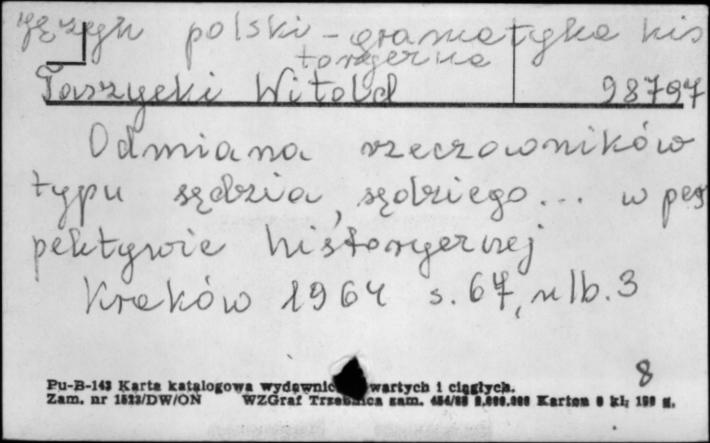 Język polski - gramatyka his
toryczna
Taszycki Witold 98797
Odmiana rzeczowników
typu sędzia, sędziego... w pers
pektywie historycznej
Kraków 1964 s. 67, nlb. 3
8
Pu-B-143 Karta katalogowa wydawnic wartych i ciągłych.
Zam. nr 1523/DW/ON WZGraf Trzebnica zam. Karton kl.